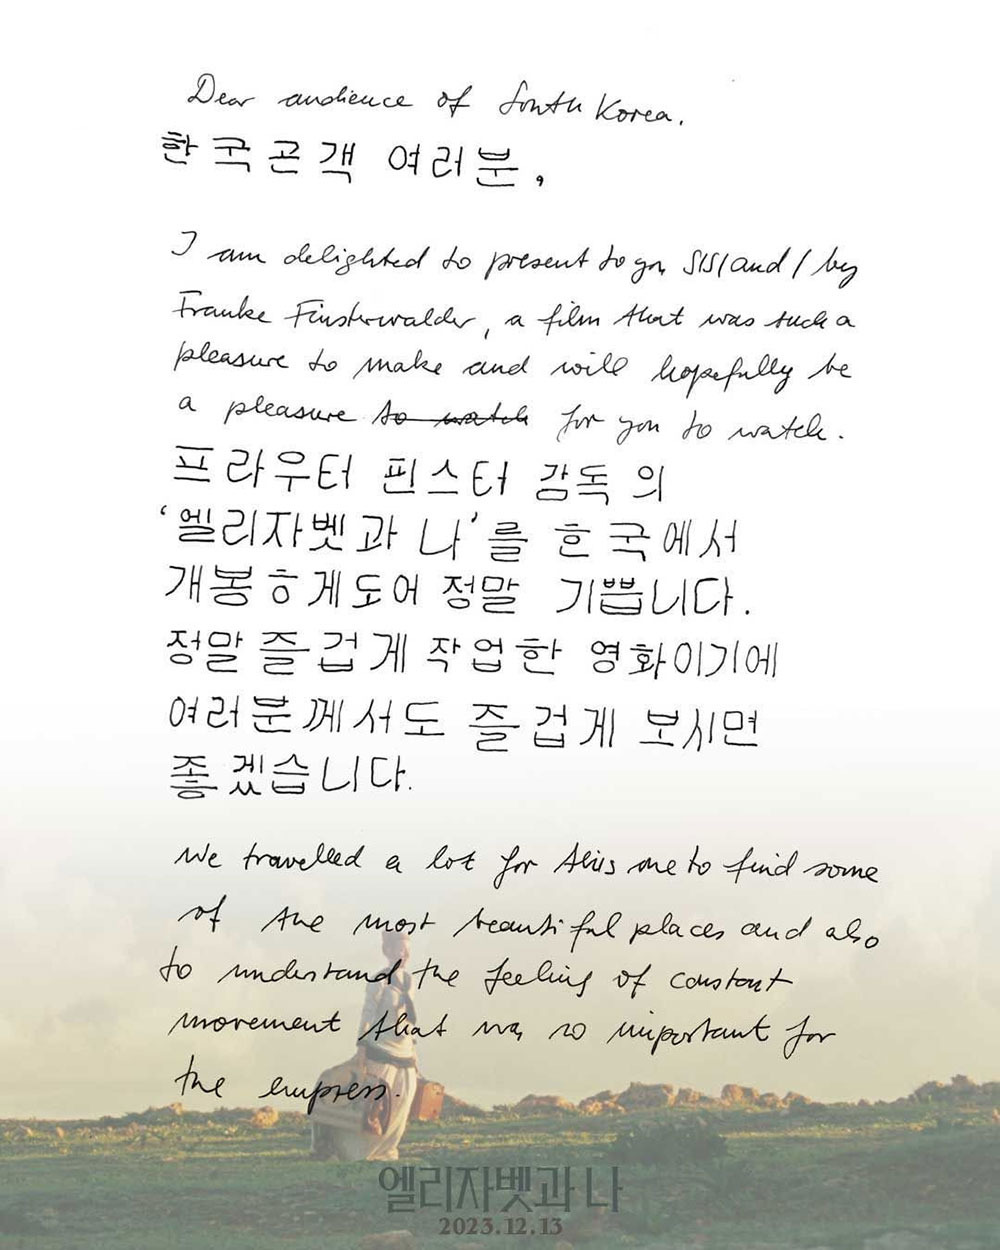 Dear audience of South Korea.
한국관객 여러분,
I am delighted to present to you SISI and I by
Frauke Finsterwalder, a film that was such a
pleasure to make and will hopefully be
a pleasure to watch for you to watch.
프라우터 핀스터 감독 의
'엘리자벳과 나'를 한국에서
개봉하게되어 정말 기쁩니다.
정말 즐겁게 작업한 영화이기에
여러분께서도 즐겁게 보시면
좋겠습니다.
We travelled a lot for this one to find some
of the most beautiful places and also
to understand the feeling of constant
movement that was so important for
the empress.
엘리자벳과 나
2023.12.13